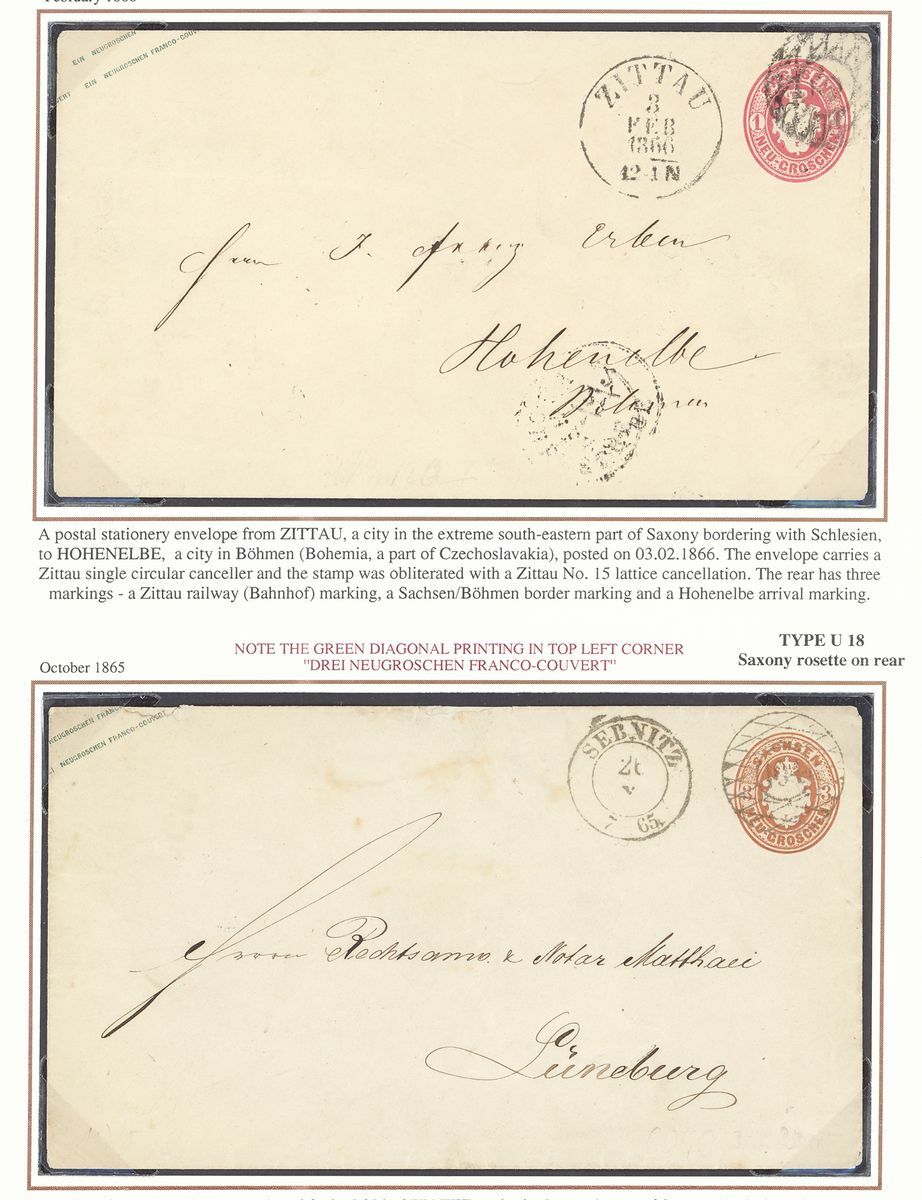 February 1866
EIN NEUGROSCHEN
EIN NEUGROSCHEN FRANCO-COUV
ZITTAU
3
FEB
1866
12-1 N
SACHSEN
1
NEU-GROSCHEN
Herrn J.
Erben
Hohenelbe
Böhmen
A postal stationery envelope from ZITTAU, a city in the extreme south-eastern part of Saxony bordering with Schlesien,
to HOHENELBE, a city in Böhmen (Bohemia, a part of Czechoslavakia), posted on 03.02.1866. The envelope carries a
Zittau single circular canceller and the stamp was obliterated with a Zittau No. 15 lattice cancellation. The rear has three
markings - a Zittau railway (Bahnhof) marking, a Sachsen/Böhmen border marking and a Hohenelbe arrival marking.
TYPE U 18
Saxony rosette on rear
NOTE THE GREEN DIAGONAL PRINTING IN TOP LEFT CORNER
"DREI NEUGROSCHEN FRANCO-COUVERT"
October 1865
NEUGROSCHEN FRANC
NEUGROSCHEN FRANCO-COUVERT
SEBNITZ
7 65
SACHSEN
3 3
NEU-GROSCHEN
Herrn Rechtsanw. & Notar Matthaei
Lüneburg